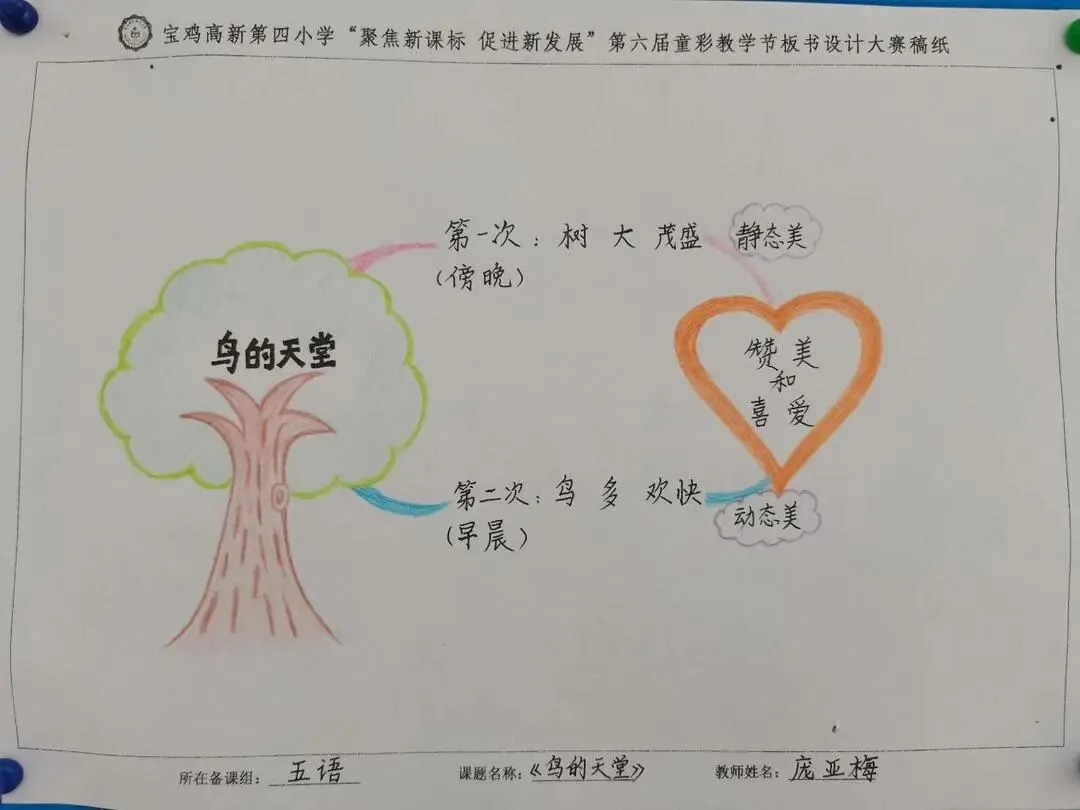 宝鸡高新第四小学“聚焦新课标 促进新发展”第六届童彩教学节板书设计大赛稿纸
鸟的天堂
第一次：树 大 茂盛
(傍晚)
静态美
赞 美
和
喜 爱
第二次：鸟 多 欢快
(早晨)
动态美
所在备课组：五语
课题名称：《鸟的天堂》
教师姓名：庞亚梅